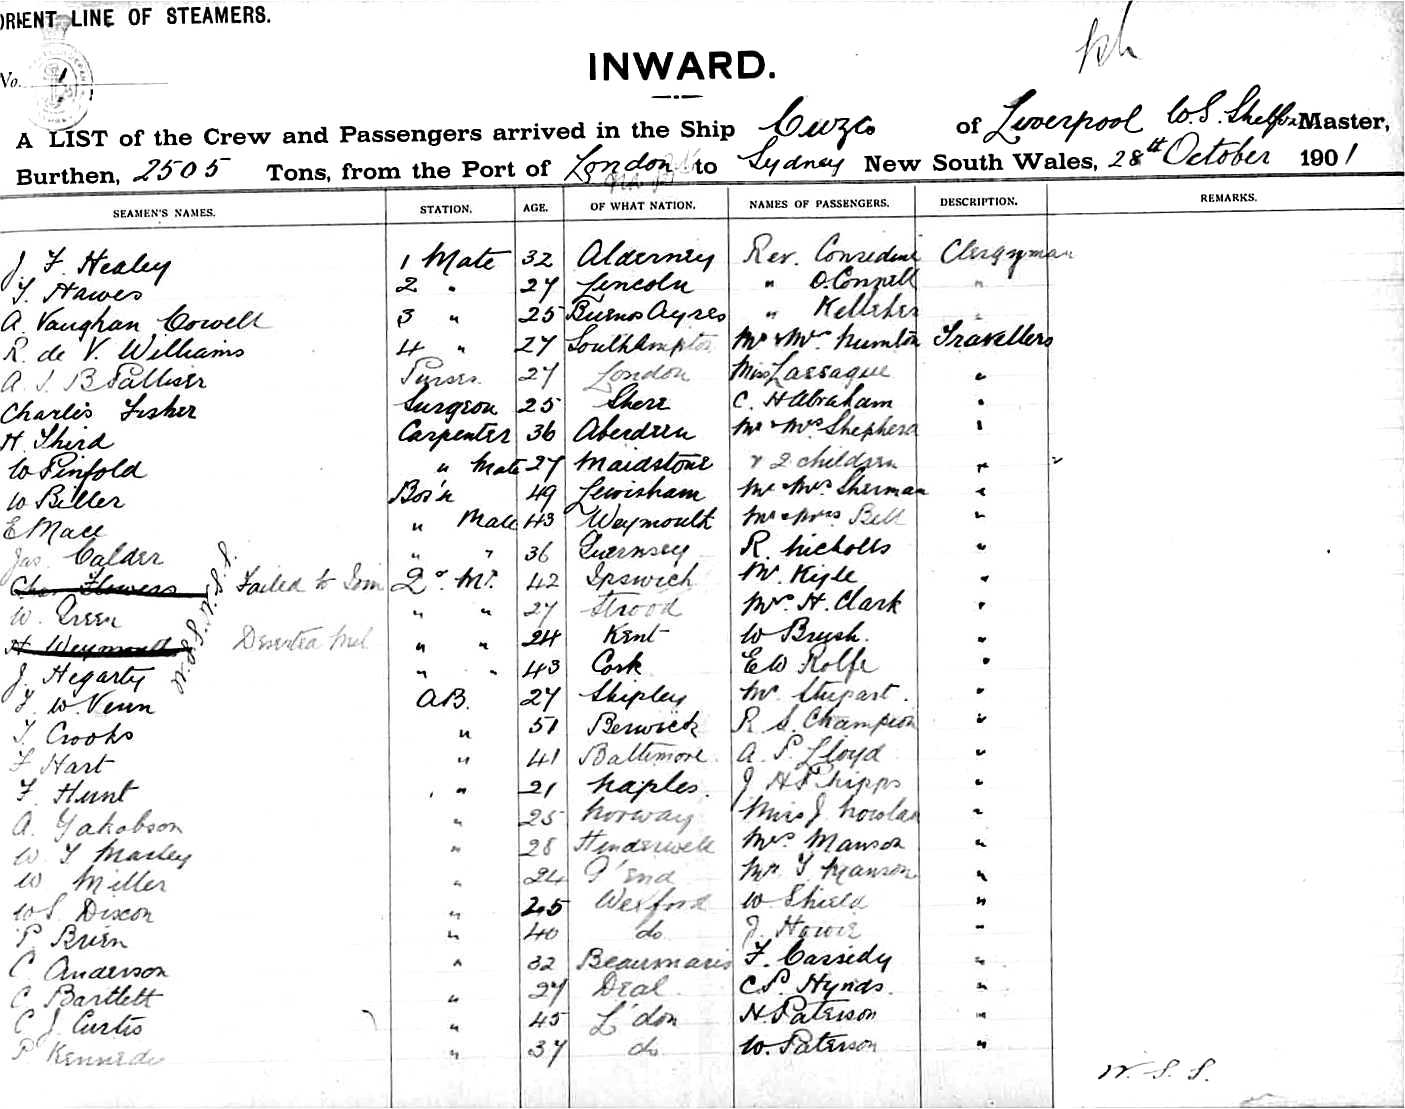 ORIENT LINE OF STEAMERS.
No. 1
INWARD.
A LIST of the Crew and Passengers arrived in the Ship Cuzco of Liverpool W. S. Shelford Master,
Burthen, 2505 Tons, from the Port of London to Sydney New South Wales, 28th October 1901
SEAMEN'S NAMES. STATION. AGE. OF WHAT NATION. NAMES OF PASSENGERS. DESCRIPTION. REMARKS.
J. F. Healey 1 Mate 32 Alderney Rev. Consedine Clergyman
T. Hawes 2 " 27 Lincoln " O'Connell "
A. Vaughan Cowell 3 " 25 Buenos Ayres " Kelleher "
R. de V. Williams 4 " 27 Southampton Mr & Mrs Numton Travellers
A. J. B Palliser Purser 27 London Miss Lassague "
Charles Fisher Surgeon 25 Shere C. H Abraham "
H. Third Carpenter 36 Aberdeen Mr & Mrs Shepherd "
W Pinfold " Mate 27 Maidstone & 2 children "
W Biller Bos'n 49 Lewisham Mr & Mrs Sherman "
E Mace " Mate 43 Weymouth Mr & Mrs Bell "
Jas. Calder " " 36 Guernsey R. Nicholls "
Chas Flowers Failed to Join 2r. Mr. 42 Ipswich Mr. Kyle "
W. Green " " 27 Strood Mrs. H. Clark "
H Weymouth Deserted Mel " " 24 Kent W Brush. "
W.S.S. W.S.S.
J. Hegarty " " 43 Cork E W Rolfe "
F. W. Venn A.B. 27 Shipley Mr. Stupart. "
T. Crooks " 51 Berwick R S. Champion "
F Hart " 41 Baltimore. A. P. Lloyd "
F. Hunt " 21 Naples. J H Phipps "
A. Yakobson " 25 Norway Miss J. Nowlan "
W T Masley " 28 Hinderwell Mrs. Manson "
W Miller " 24 G'end Mr. T Manson "
W S. Dixon " 25 Wexford W Shield "
P. Brien " 40 do J. Howie "
C. Anderson " 32 Beaumaris F. Cassidy "
C Bartlett " 27 Deal C P. Hynds. "
C J. Curtis " 45 L'don H. Paterson "
P Kennedy " 37 do W. Paterson "
W. S. S.